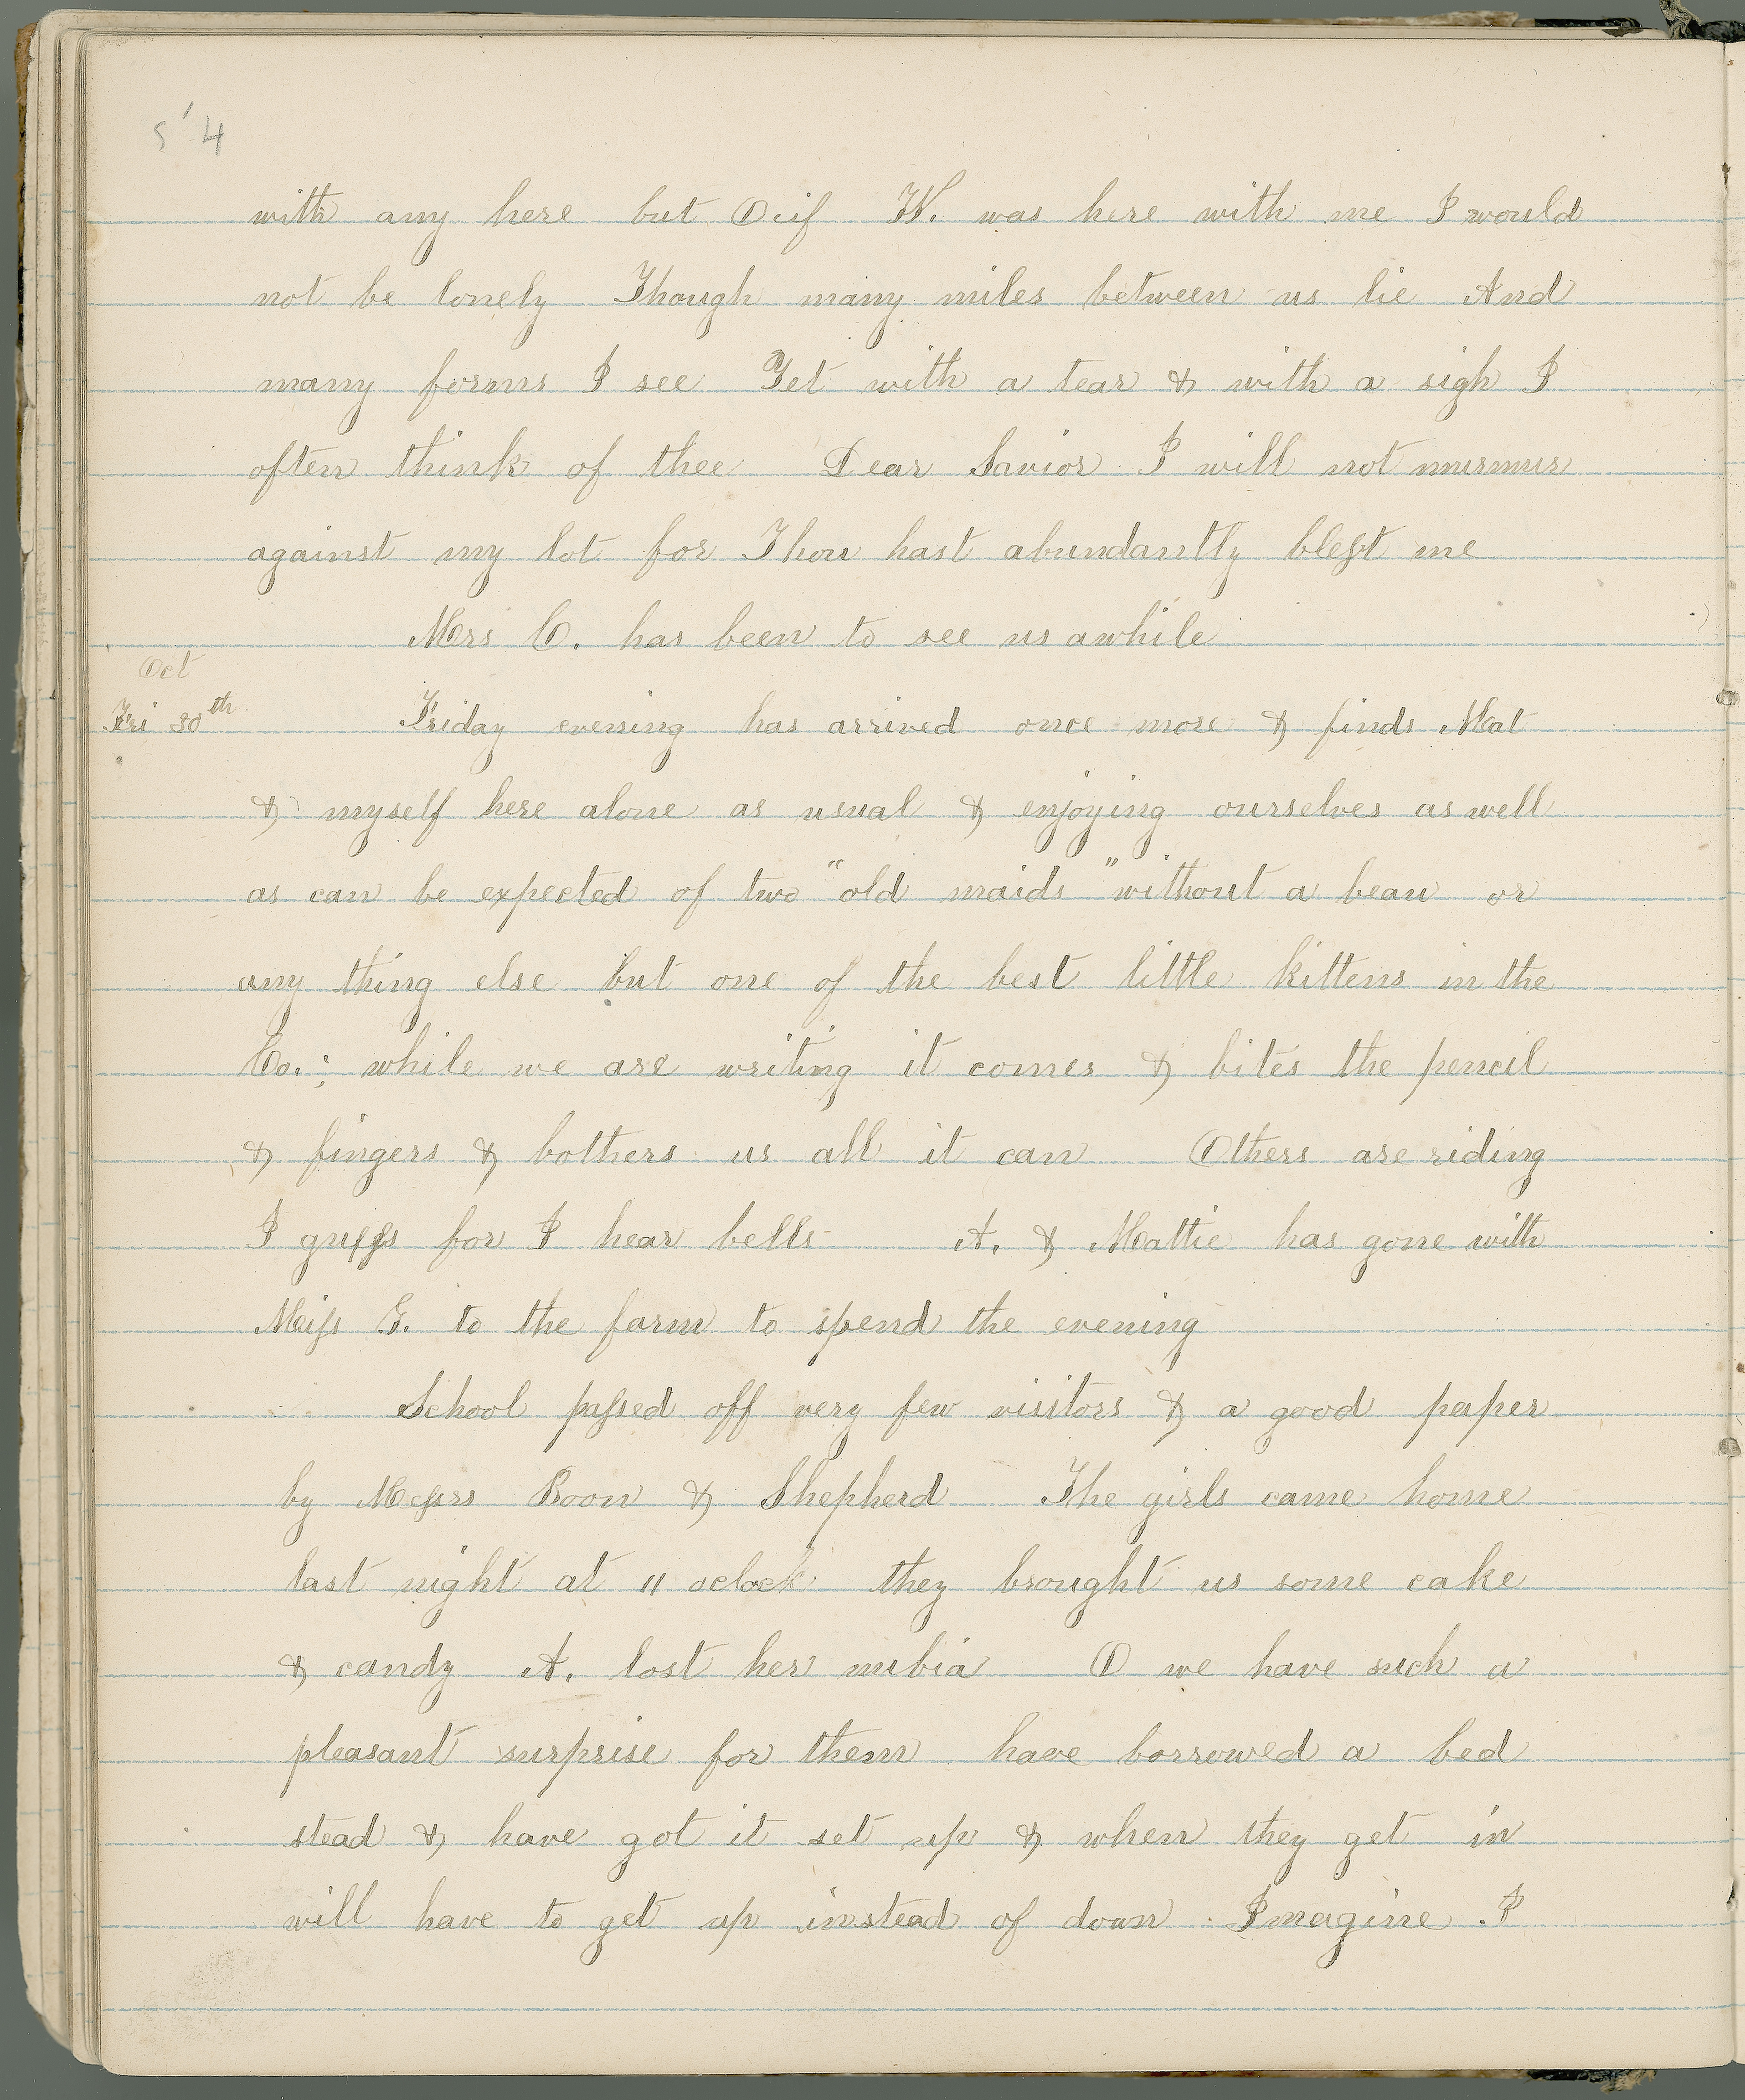 54
with any here but O if W. was here with me I would
not be lonely Though many miles between us lie And
many forms I see Yet with a tear & with a sigh I
often think of thee Dear Savior I will not murmur
against my lot for Thou hast abundantly blest me
Mrs C. has been to see us awhile
Oct
Fri 30th Friday evening has arrived once more & finds Mat
& myself here alone as usual & enjoying ourselves as well
as can be expected of two "old maids" without a beau or
any thing else but one of the best little kittens in the
Co.; while we are writing it comes & bites the pencil
& fingers & bothers us all it can Others are riding
I guess for I hear bells A. & Mattie has gone with
Miss G. to the farm to spend the evening
School passed off very few visitors & a good paper
by Messrs Boon & Shepherd The girls came home
last night at 11 oclock they brought us some cake
& candy A. lost her nubia O we have such a
pleasant surprise for them have borrowed a bed
stead & have got it set up & when they get in
will have to get up instead of down Imagine I